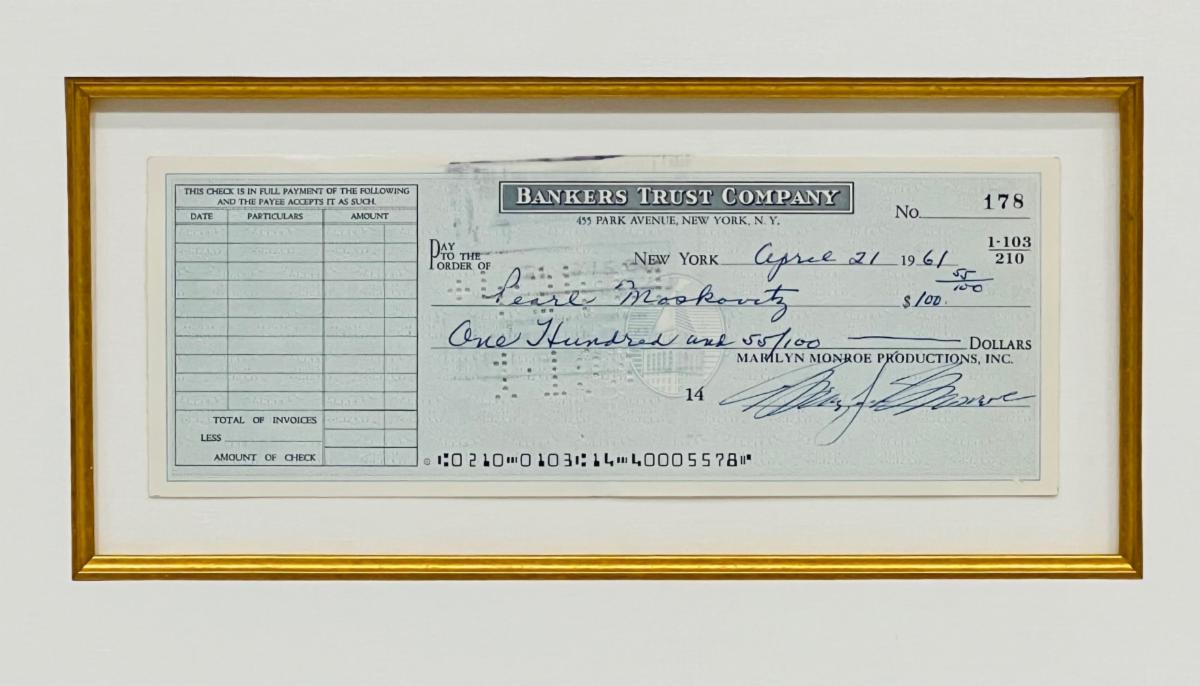 THIS CHECK IS IN FULL PAYMENT OF THE FOLLOWING
AND THE PAYEE ACCEPTS IT AS SUCH.
DATE PARTICULARS AMOUNT
TOTAL OF INVOICES
LESS
AMOUNT OF CHECK
BANKERS TRUST COMPANY
455 PARK AVENUE, NEW YORK, N. Y.
No. 178
1-103
210
PAY
TO THE
ORDER OF
NEW YORK April 21 1961
Pearl Moskovitz $100. 55/100
One Hundred and 55/100 DOLLARS
MARILYN MONROE PRODUCTIONS, INC.
14 Marilyn Monroe
⑆0210⑉0103⑆14⑉40005578⑈